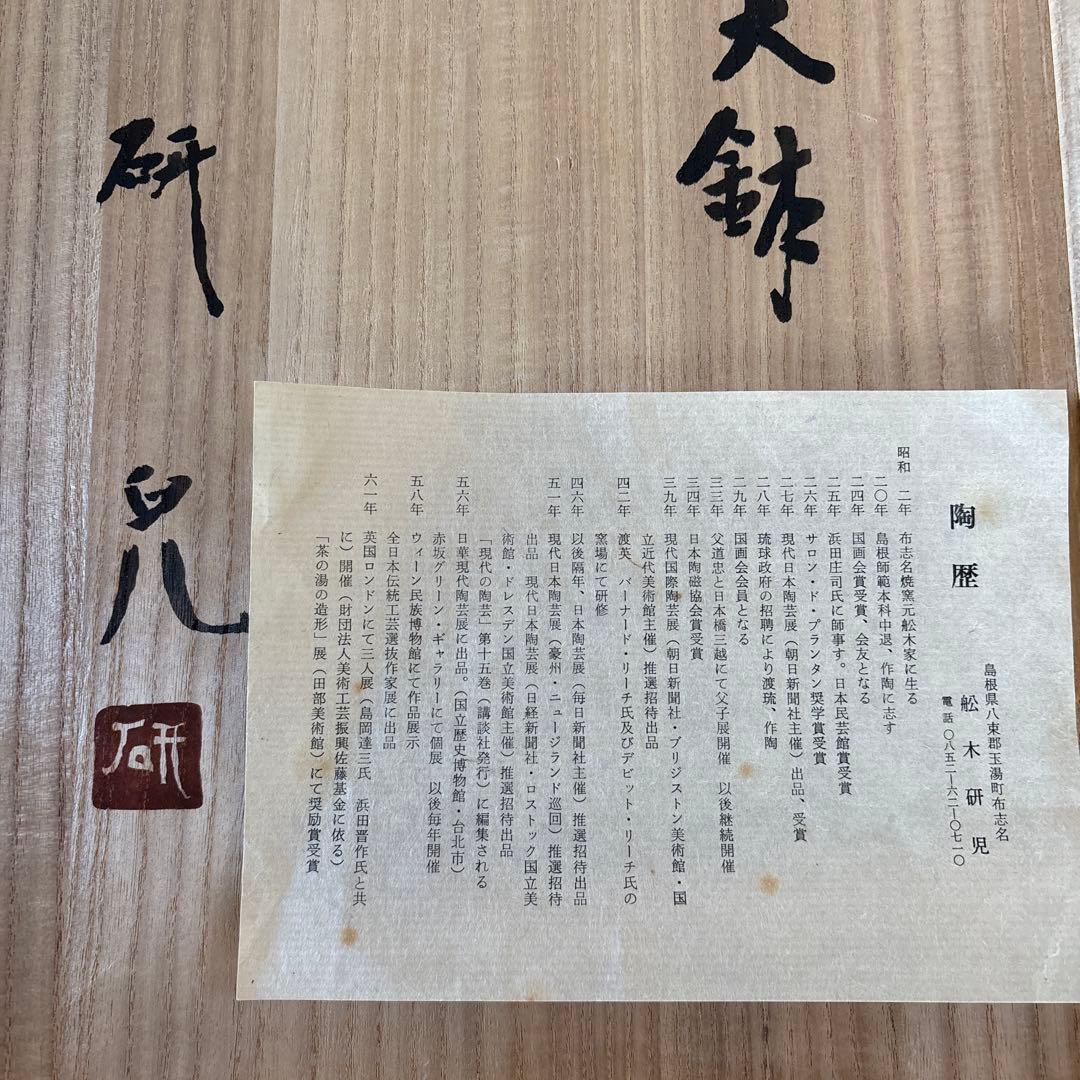 大鉢
研児
研
陶歴
島根県八束郡玉湯町布志名
舩木研児
電話〇八五二ー六二ー〇七一〇
昭和 二年 布志名焼窯元舩木家に生る
二〇年 島根師範本科中退、作陶に志す
二四年 国画会賞受賞、会友となる
二五年 浜田庄司氏に師事す。日本民芸館賞受賞
二六年 サロン・ド・プランタン奨学賞受賞
二七年 現代日本陶芸展(朝日新聞社主催)出品、受賞
二八年 琉球政府の招聘により渡琉、作陶
二九年 国画会会員となる
三三年 父道忠と日本橋三越にて父子展開催 以後継続開催
三四年 日本陶磁協会賞受賞
三九年 現代国際陶芸展(朝日新聞社・ブリジストン美術館・国
立近代美術館主催)推選招待出品
四二年 渡英 バーナード・リーチ氏及びデビット・リーチ氏の
窯場にて研修
四六年 以後隔年、日本陶芸展(毎日新聞社主催)推選招待出品
五一年 現代日本陶芸展(豪州・ニュージランド巡回)推選招待
出品 現代日本陶芸展(日経新聞社・ロストック国立美
術館・ドレスデン国立美術館主催)推選招待出品
「現代の陶芸」第十五巻(講談社発行)に編集される
五六年 日華現代陶芸展に出品。(国立歴史博物館・台北市)
赤坂グリーン・ギャラリーにて個展 以後毎年開催
五八年 ウィーン民族博物館にて作品展示
全日本伝統工芸選抜作家展に出品
六一年 英国ロンドンにて三人展(島岡達三氏 浜田晋作氏と共
に)開催(財団法人美術工芸振興佐藤基金に依る)
「茶の湯の造形」展(田部美術館)にて奨励賞受賞